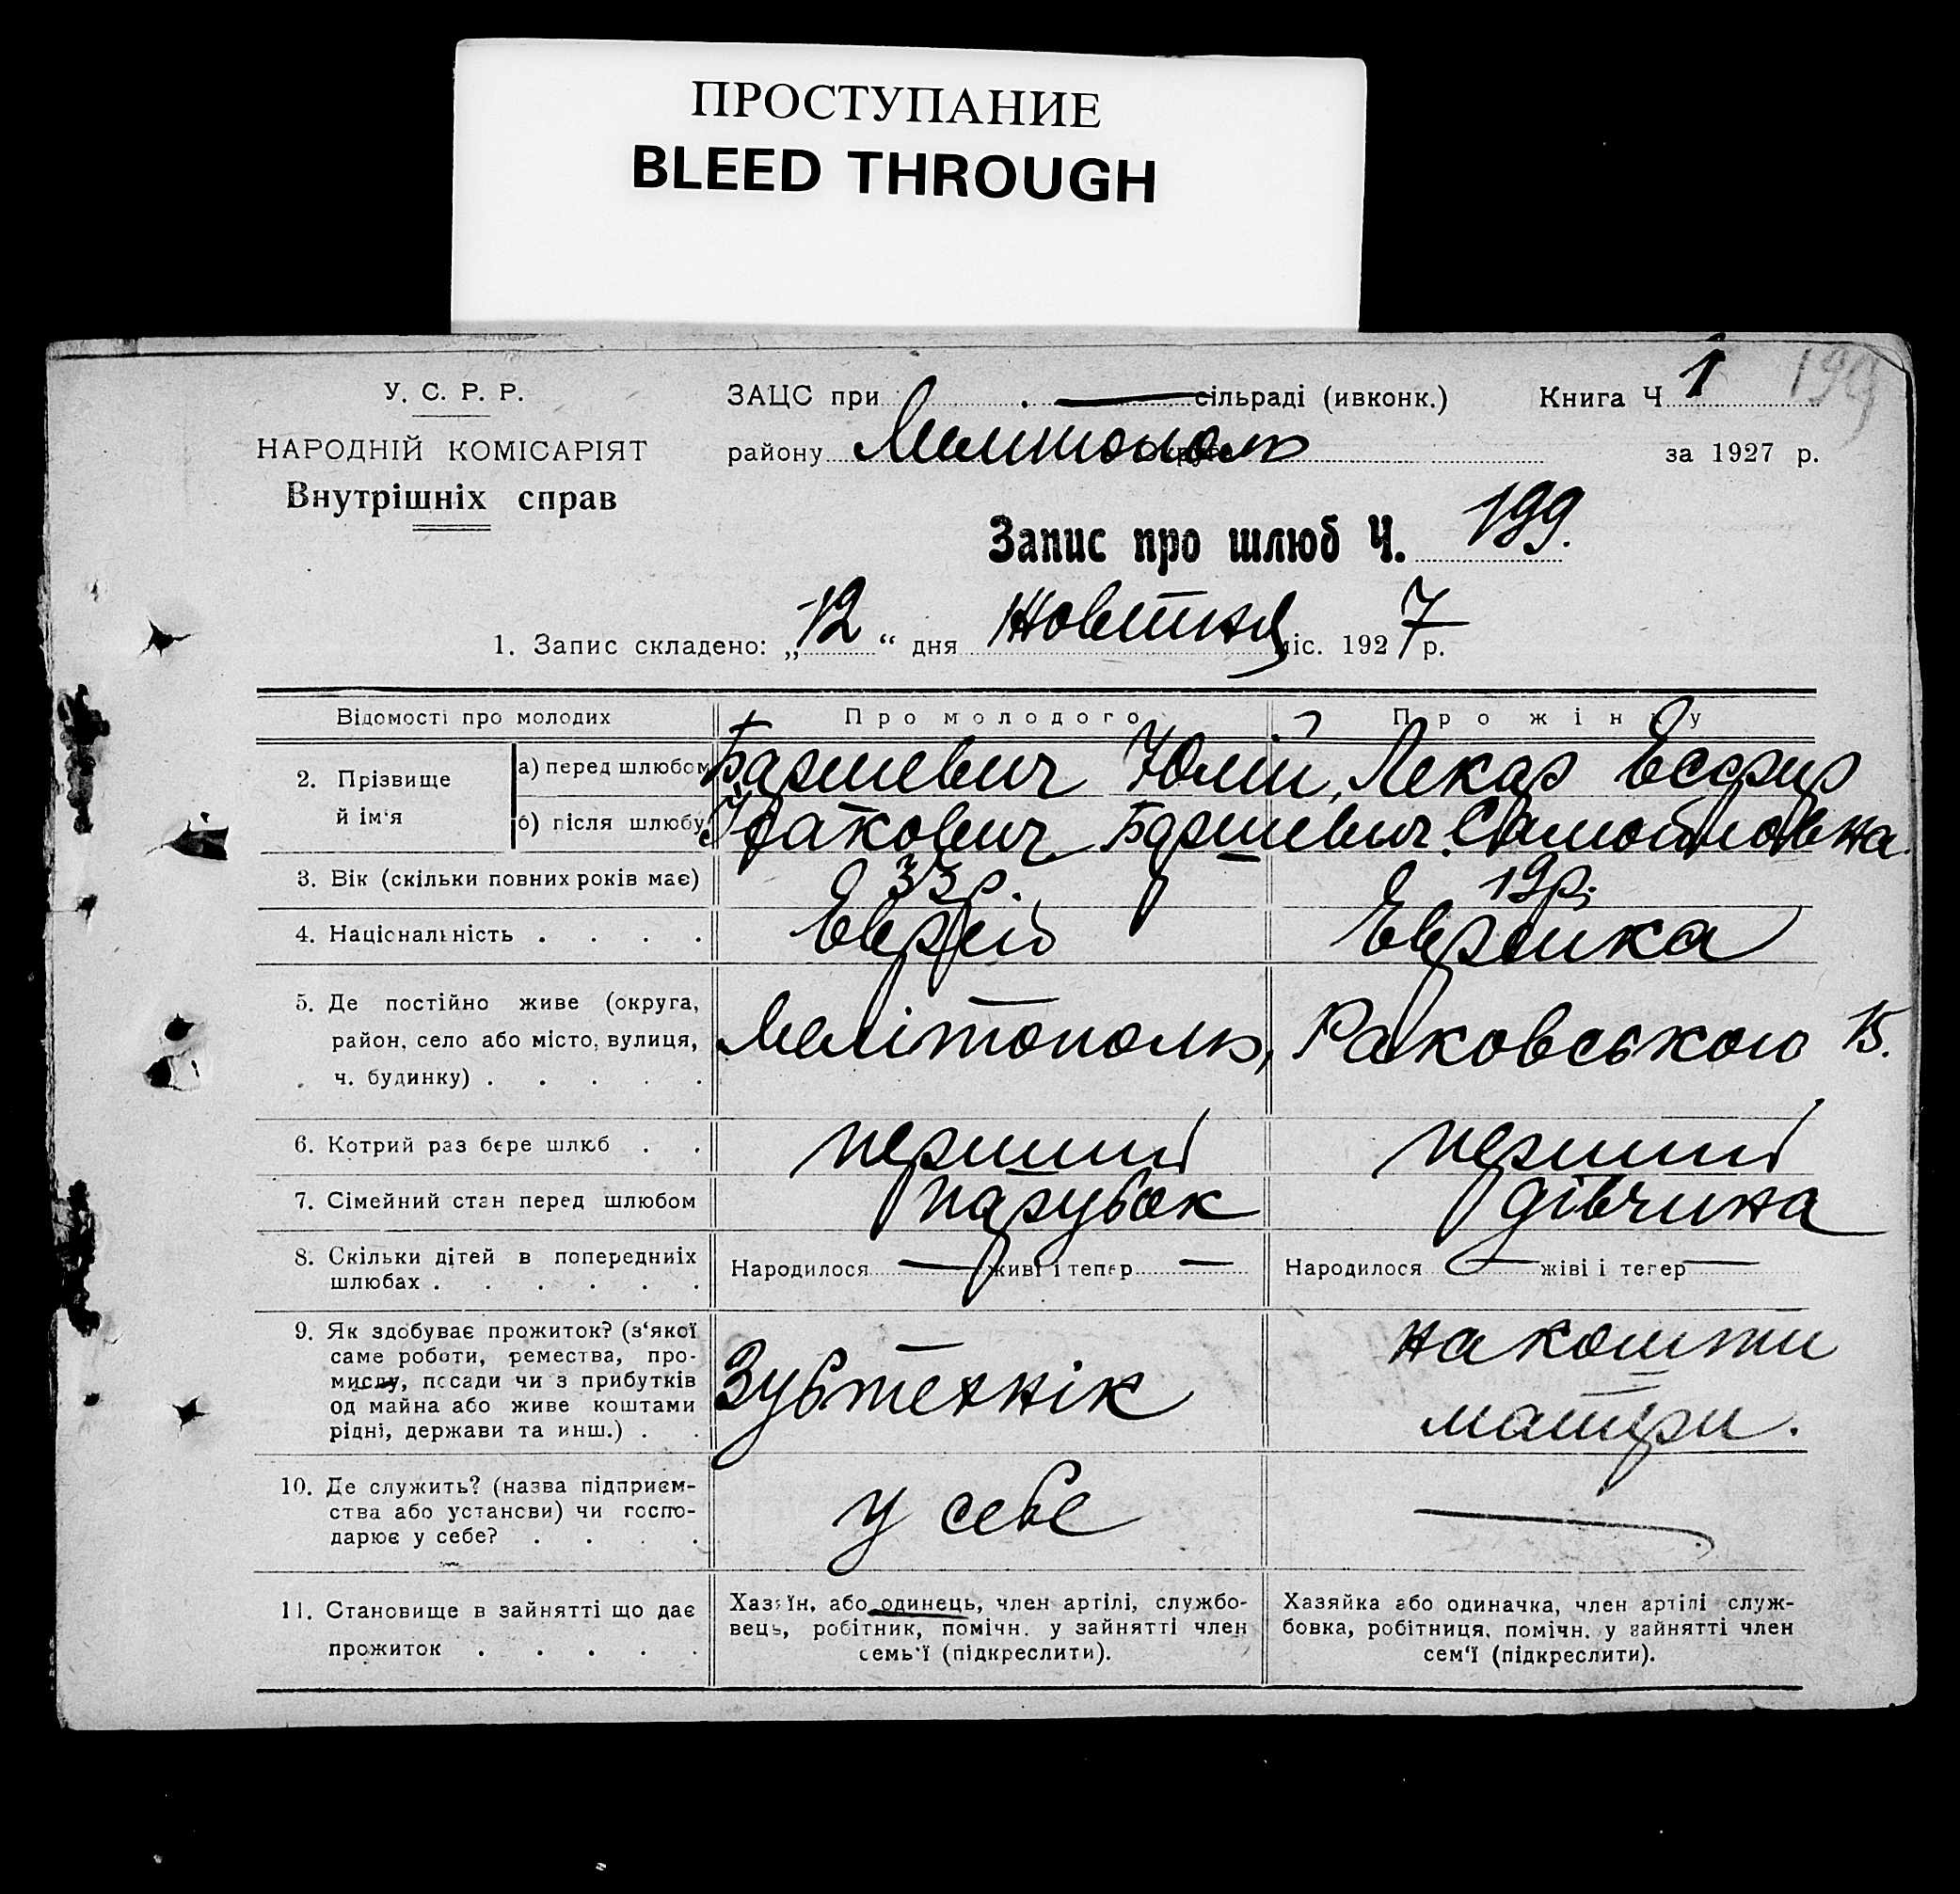 ПРОСТУПАНИЕ
BLEED THROUGH
У. С. Р. Р.
НАРОДНІЙ КОМІСАРІЯТ
Внутрішніх справ
ЗАЦС при — сільраді (ивконк.)
Книга Ч 1
199
району Мелитополь
за 1927 р.
Запис про шлюб Ч. 199.
1. Запис складено: „12“ дня Жовтня міс. 1927 р.
Відомості про молодих
Про молодого
Про жінку
2. Прізвище й ім‘я
а) перед шлюбом
б) після шлюбу
Юлій, Лекар Есфир
3. Вік (скільки повних років має)
33 р.
19 р.
4. Національність . . . .
Еврей
Еврейка
5. Де постійно живе (округа,
район, село або місто, вулиця,
ч. будинку) . . . . .
Мелітополь, Раковською 15.
6. Котрий раз бере шлюб . .
перший
перший
7. Сімейний стан перед шлюбом
парубок
дівчина
8. Скільки дітей в попередниіх
шлюбах . . . . . .
Народилося — живі і тепер —
Народилося — жіві і тепер —
9. Як здобуває прожиток? (з‘якої
саме роботи, ремества, про-
мислу, посади чи з прибутків
од майна або живе коштами
рідні, держави та инш.) . .
Зубтехнік
на кошти
матери.
10. Де служить? (назва підприєм-
ства або установи) чи госпо-
дарює у себе? . . . .
у себе
—
11. Становище в зайнятті що дає
прожиток . . . . .
Хазяїн, або одинець, член артілі, службо-
вець, робітник, помічн. у зайнятті член
семь‘ї (підкреслити).
Хазяйка або одиначка, член артілі служ-
бовка, робітниця, помічн. у зайнятті член
сем‘ї (підкреслити).